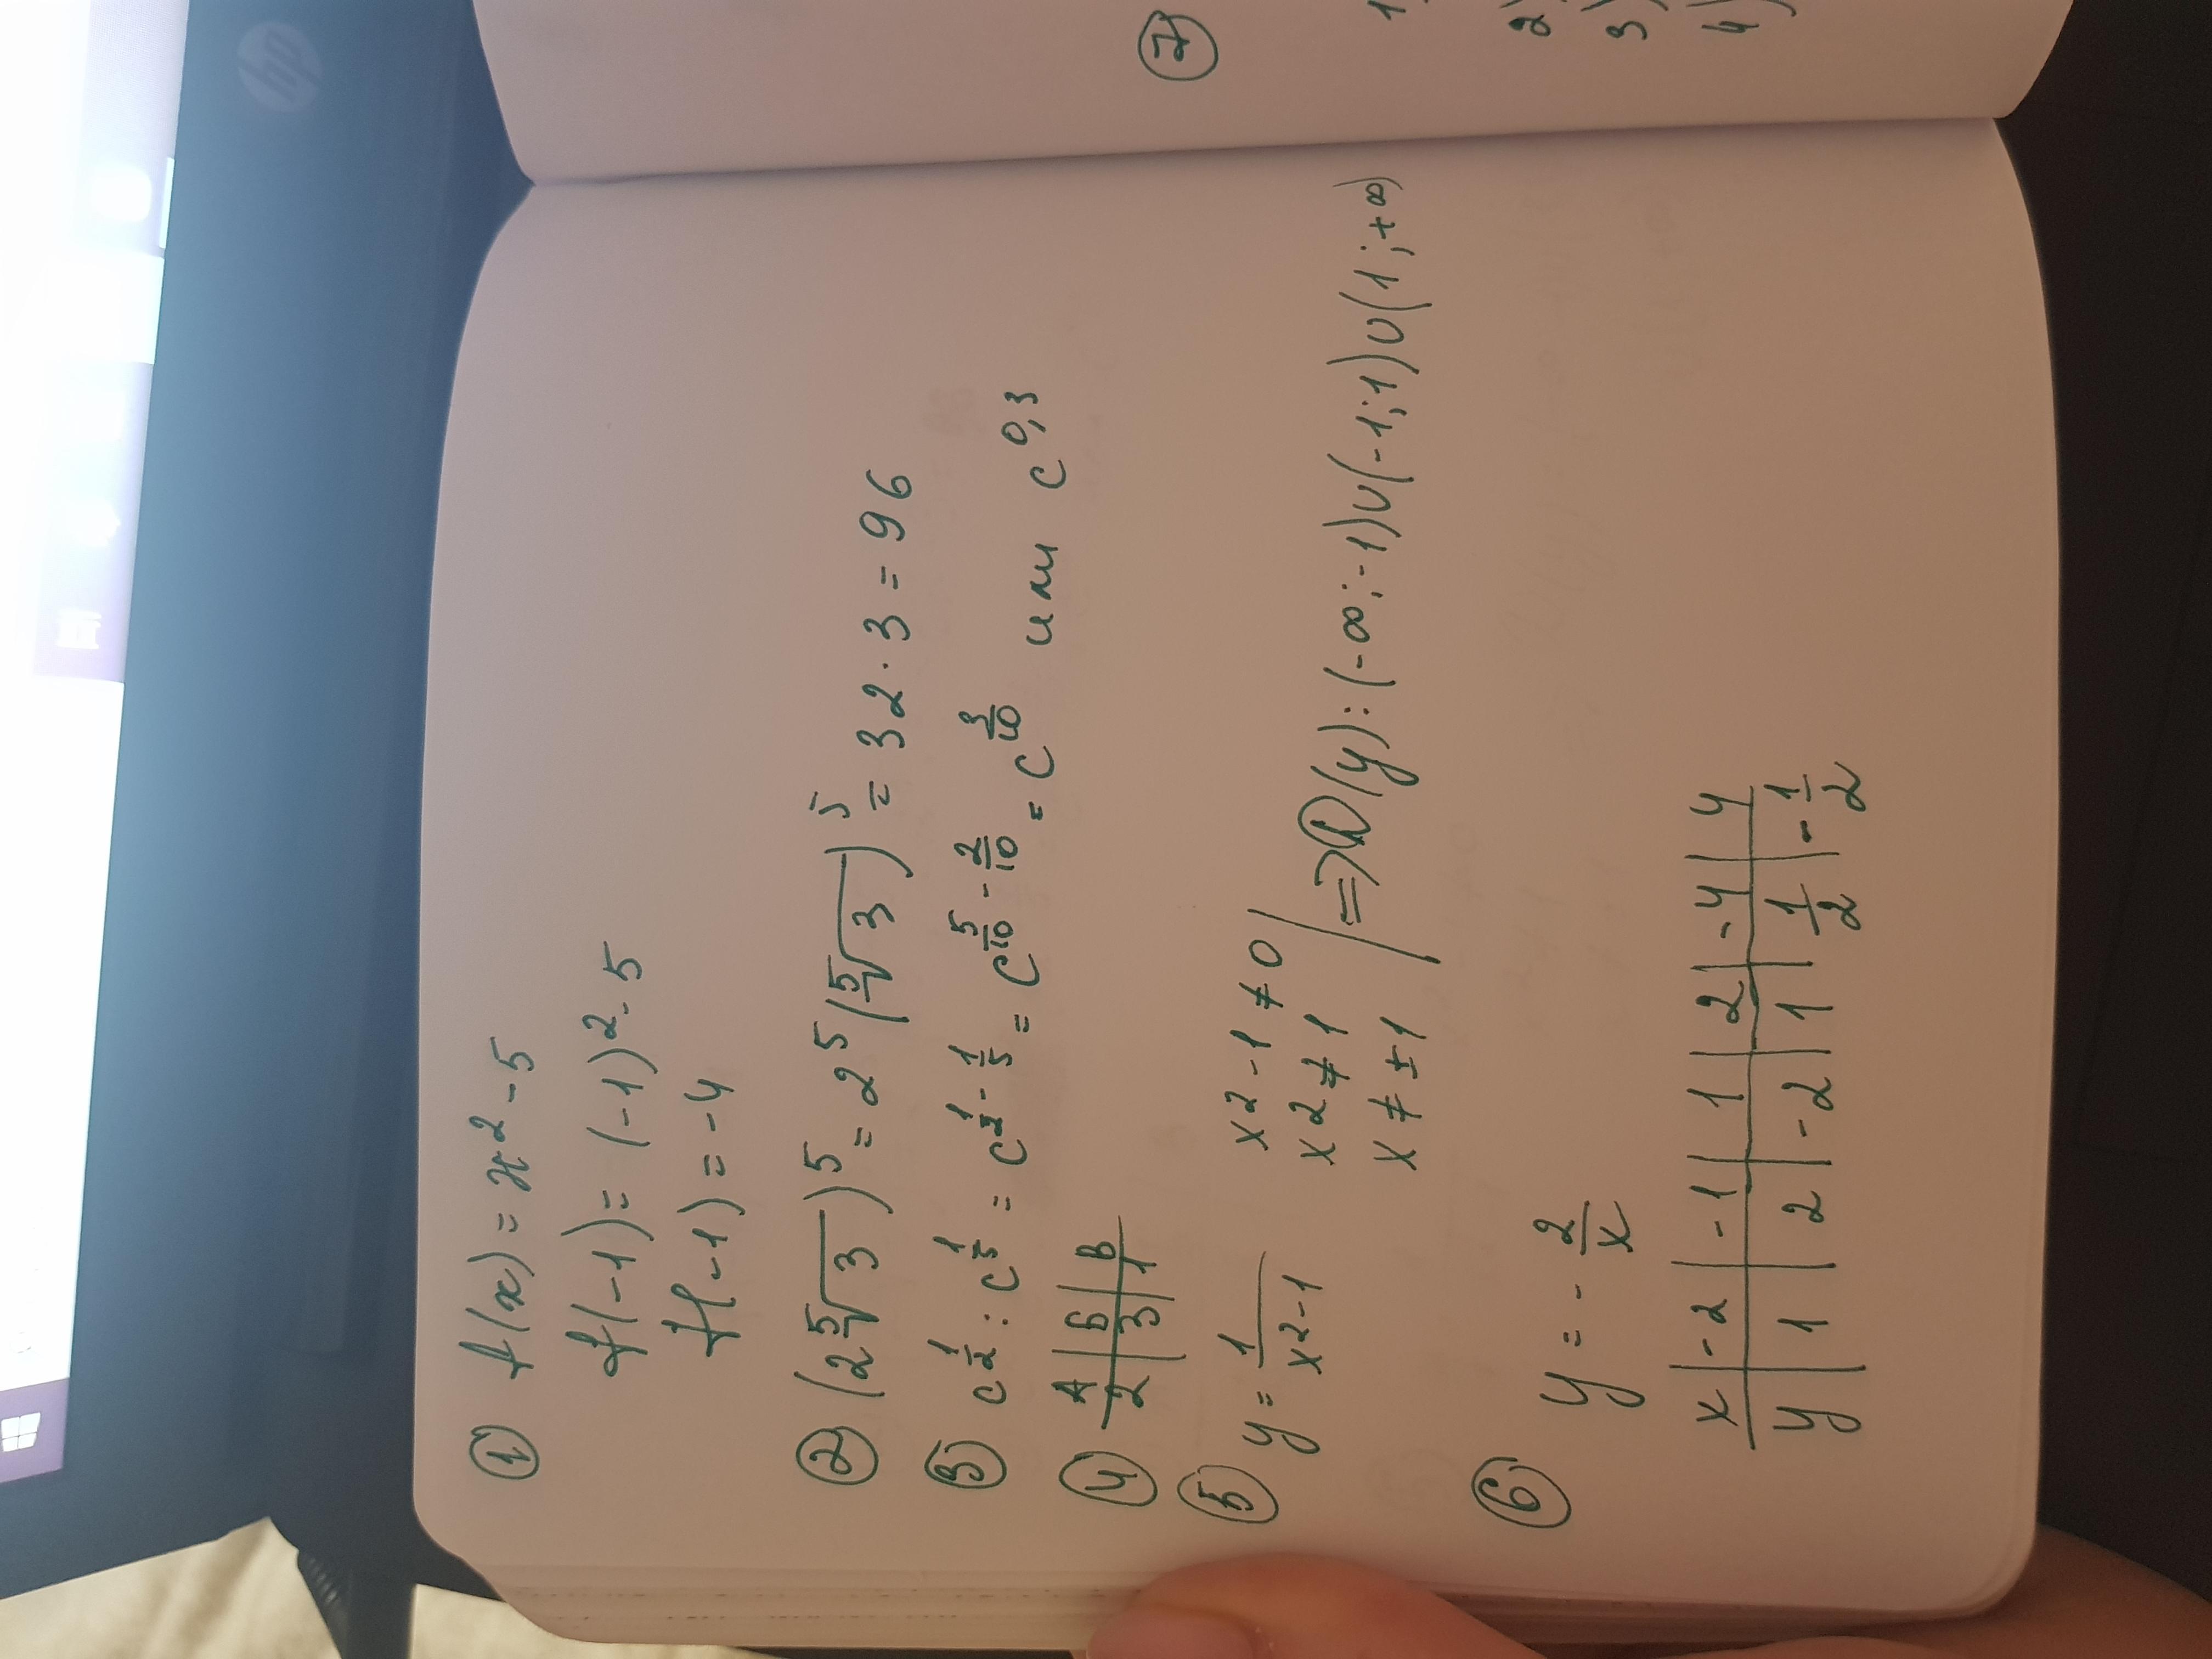 ① f(x) = x² - 5
f(-1) = (-1)² - 5
f(-1) = -4
② (2⁵√3)⁵ = 2⁵(⁵√3)⁵ = 32 · 3 = 96
③ c^(1/2) : c^(1/5) = c^(1/2 - 1/5) = c^(5/10 - 2/10) = c^(3/10) или c^0,3
④ А | Б | В
2 | 3 | 1
⑤ y = 1/(x2-1) x2 - 1 ≠ 0
x2 ≠ 1
x ≠ ± 1
=> D(y): (-∞; -1)∪(-1; 1)∪(1; +∞)
⑥ y = - 2/x
x | -2 | -1 | 1 | 2 | -4 | 4
y | 1 | 2 | -2 | 1 | 1/2 | -1/2
⑦
1)
2)
3)
4)
hp